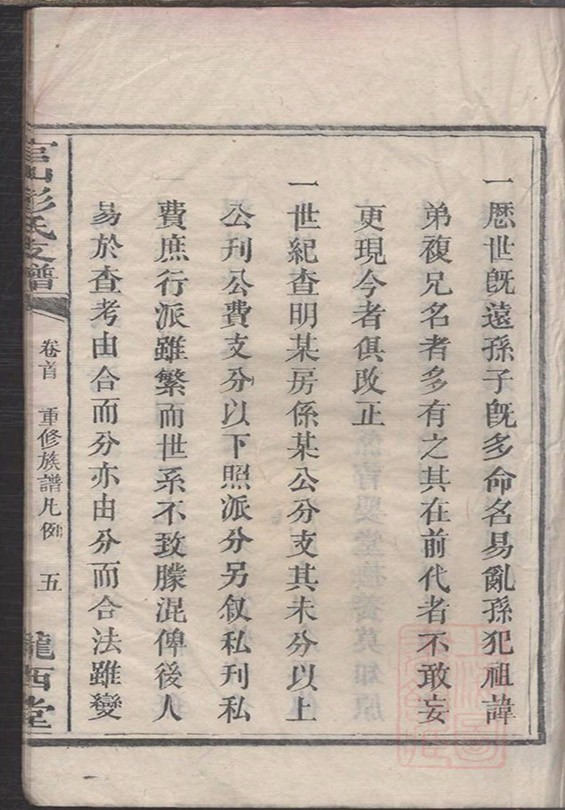 一厯世旣遠孫子旣多命名易亂孫犯祖諱
弟複兄名者多有之其在前代者不敢妄
更現今者俱改正
一世紀查明某房係某公分支其未分以上
公刊公費支分以下照派分另叙私刊私
費庶行派雖繁而世系不致朦混俾後人
易於查考由合而分亦由分而合法雖變
彭氏支譜
卷首
重修族譜凡例
五
隴西堂